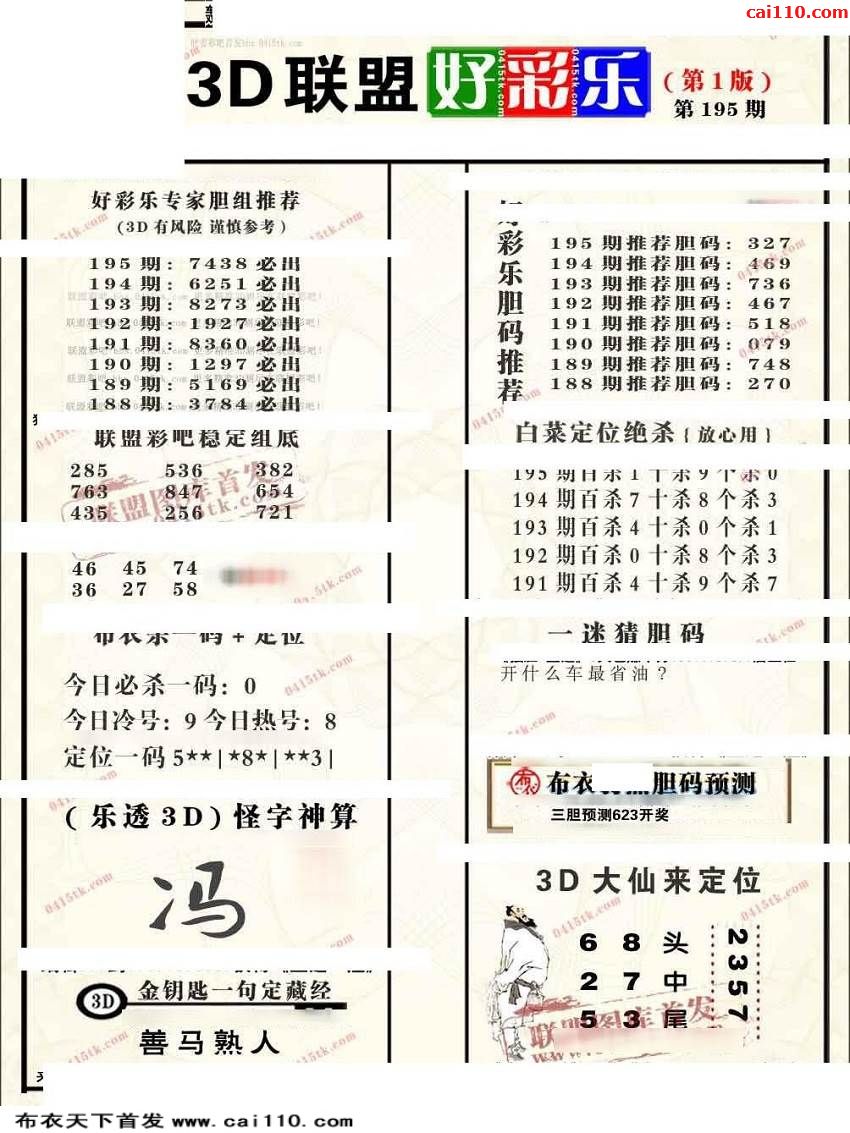 cai110.com
3D联盟好彩乐
(第1版)
第195期
好彩乐专家胆组推荐
(3D有风险 谨慎参考)
195期: 7438必出
194期: 6251必出
193期: 8273必出
192期: 1927必出
191期: 8360必出
190期: 1297必出
189期: 5169必出
188期: 3784必出
联盟彩吧稳定组底
285 536 382
763 847 654
435 256 721
46 45 74
36 27 58
布衣杀一码+定位
今日必杀一码: 0
今日冷号: 9 今日热号: 8
定位一码 5**|*8*|**3|
(乐透3D)怪字神算
冯
3D
金钥匙一句定藏经
善马熟人
好彩乐胆码推荐
195期推荐胆码: 327
194期推荐胆码: 469
193期推荐胆码: 736
192期推荐胆码: 467
191期推荐胆码: 518
190期推荐胆码: 079
189期推荐胆码: 748
188期推荐胆码: 270
白菜定位绝杀{放心用}
195期百杀1十杀9个杀0
194期百杀7十杀8个杀3
193期百杀4十杀0个杀1
192期百杀0十杀8个杀3
191期百杀4十杀9个杀7
一迷猜胆码
开什么车最省油?
布衣
胆码预测
三胆预测623开奖
3D大仙来定位
6 8 头
2 7 中
5 3 尾
2357
联盟图库首发
0415tk.com
布衣天下首发 www.cai110.com